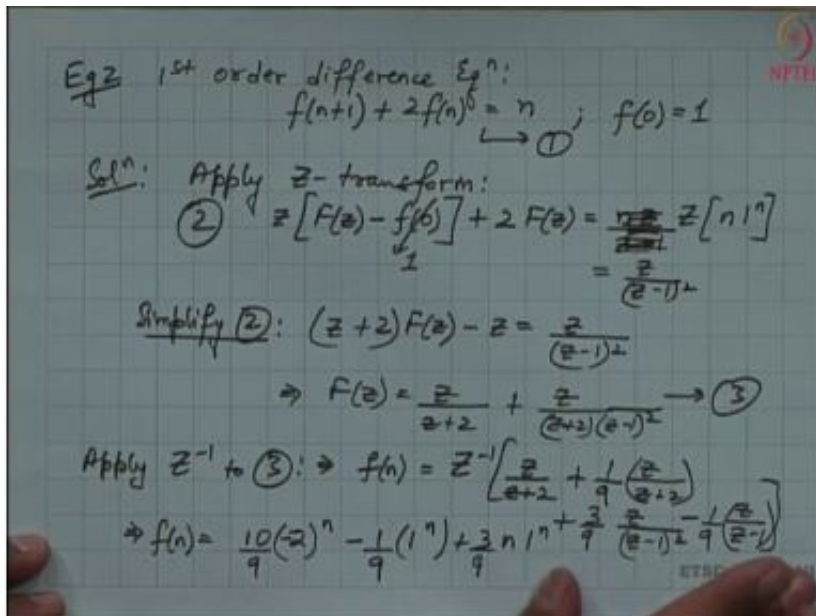 Eg 2 1st order difference Eqⁿ:
f(n+1) + 2f(n) = n ; f(0) = 1
↳ ①
Solⁿ: Apply Z-transform:
② z[F(z) - f(0)] + 2 F(z) = Z[n 1ⁿ]
1
= z/(z-1)²
Simplify ②: (z+2)F(z) - z = z/(z-1)²
⇒ F(z) = z/(z+2) + z/((z+2)(z-1)²) → ③
Apply Z⁻¹ to ③: ⇒ f(n) = Z⁻¹[z/(z+2) + 1/9 (z/(z+2))
+ 3/9 z/(z-1)² - 1/9 (z/(z-1))]
⇒ f(n) = 10/9 (-2)ⁿ - 1/9 (1ⁿ) + 3/9 n 1ⁿ
NPTEL